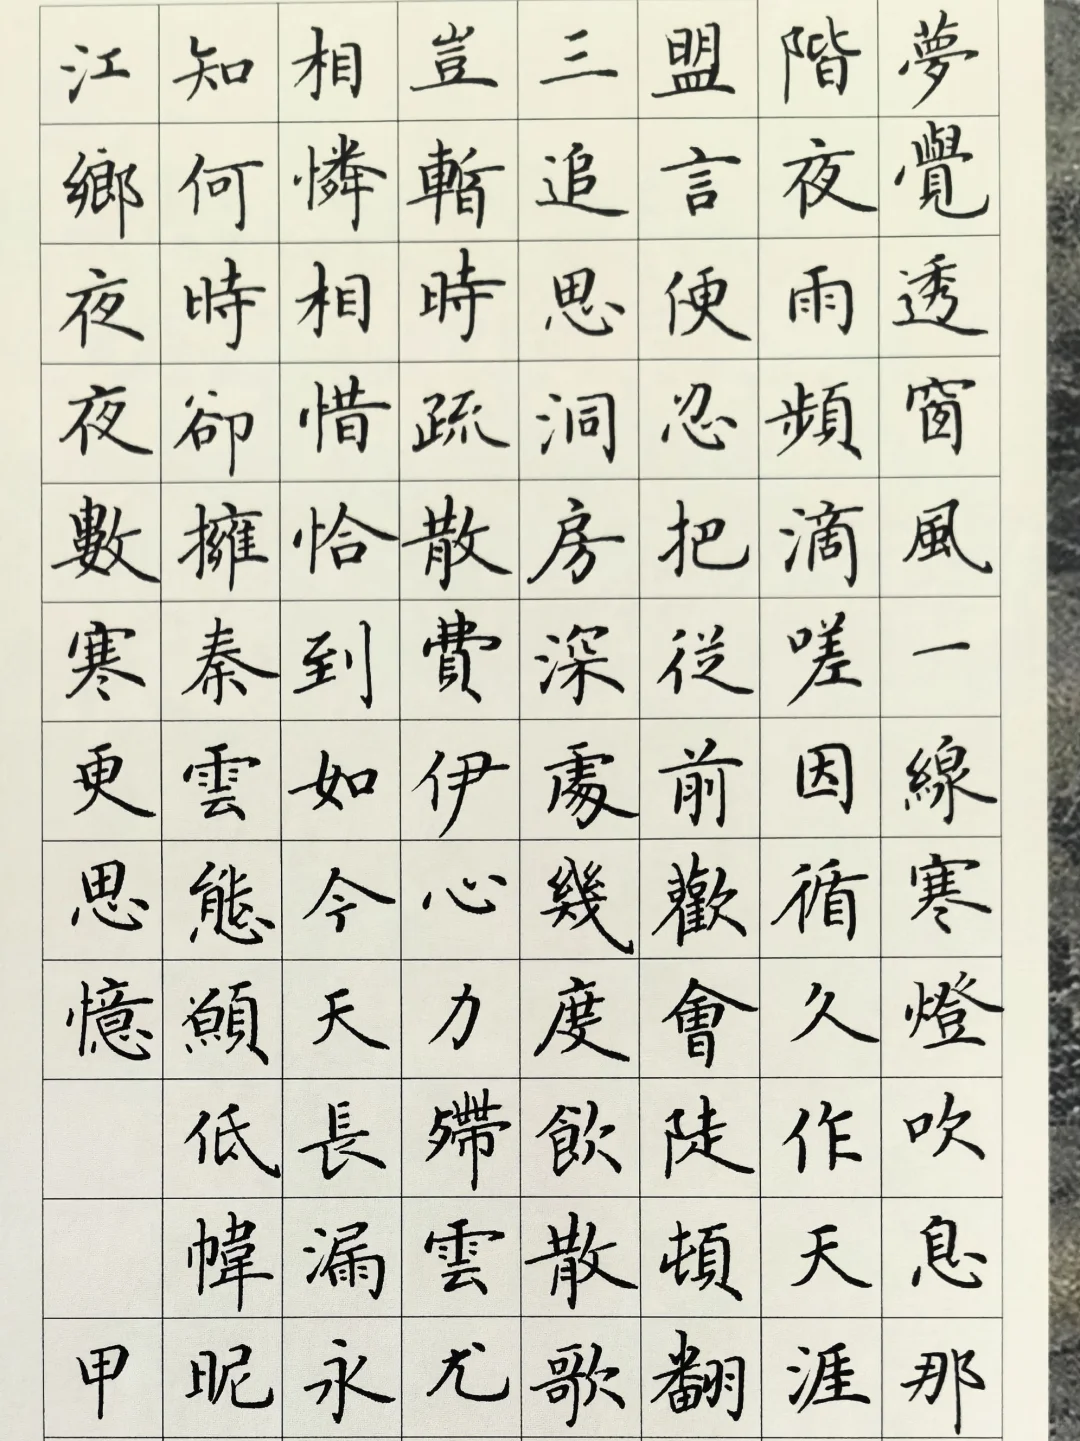 夢覺透窗風一線寒燈吹息那
階夜雨頻滴嗟因循久作天涯
盟言便忍把從前歡會陡頓翻
三追思洞房深處幾度飲散歌
豈暫時疏散費伊心力殢雲尤
相憐相惜恰到如今天長漏永
知何時卻擁秦雲態願低幃昵
江鄉夜夜數寒更思憶甲